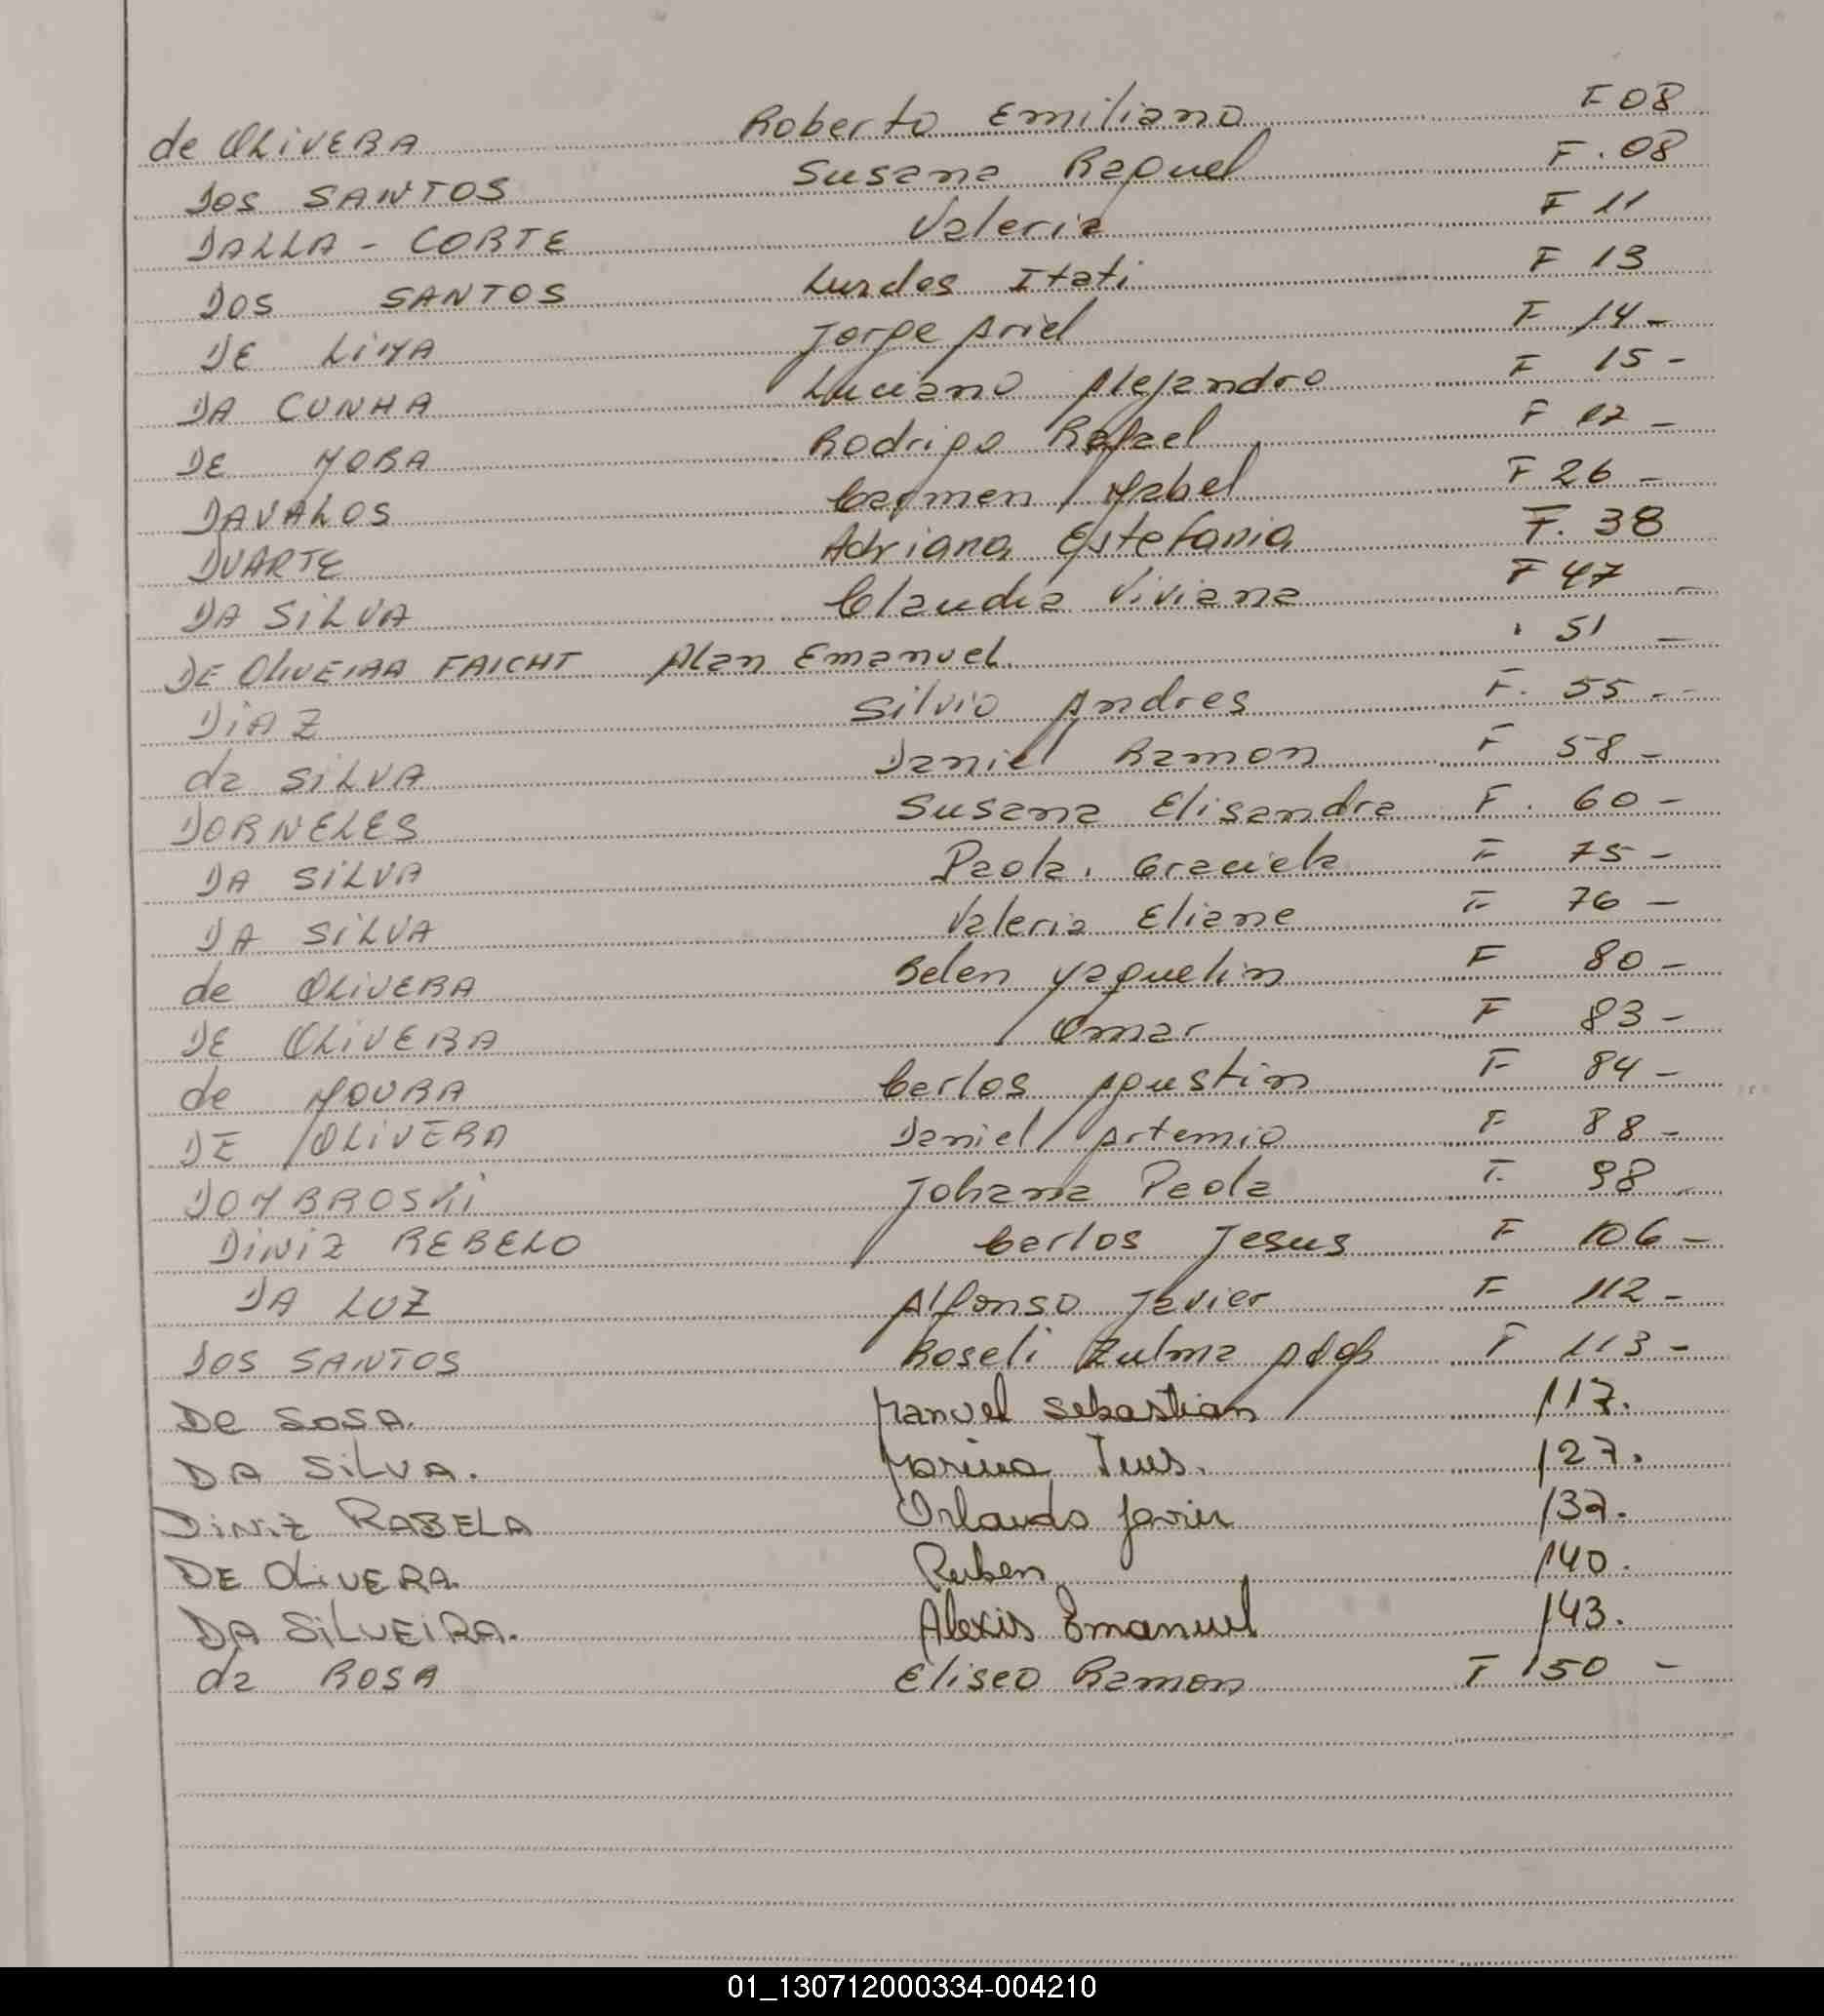 de OLiVERA Roberto Emiliano F 08
DOS SANTOS Susana Raquel F. 08
DALLA - CORTE Valeria F 11
DOS SANTOS Lurdes Itati F 13
DE LiMA Jorge Ariel F 14 -
DA CUNHA Luciano Alejandro F 15 -
DE MORA Rodrigo Rafael F 17 -
DAVALOS Carmen Mabel F 26 -
DUARTE Adriana Estefania F. 38
DA SiLVA Claudia Viviana F 47 -
DE OLiVEIRA FAICHT Alan Emanuel 51 -
DiAZ Silvio Andres F. 55 -
da SiLVA Daniel Ramon F 58 -
DORNELES Susana Elisandra F. 60 -
DA SiLVA Paola Graciela F 75 -
DA SiLVA Valeria Eliane F 76 -
de OLiVERA Belen Yaquelin F 80 -
DE OLiVERA Omar F 83 -
de MOURA Carlos Agustin F 84 -
DE OLiVERA Daniel Artemio F 88 -
DOMBROSKi Johana Paola F. 98
DiNiZ REBELO Carlos Jesus F 106 -
DA LUZ Alfonso Javier F 112 -
DOS SANTOS Roseli Zulma F 113 -
De SOSA. Manuel Sebastian 117.
DA SiLVA. Marina 127.
DiNiZ RABELA Orlando Javier 137.
DE OLiVERA. Ruben 140.
DA SiLVEiRA. Alexis Emanuel 143.
da ROSA Eliseo Ramon F 150 -
01_130712000334-004210